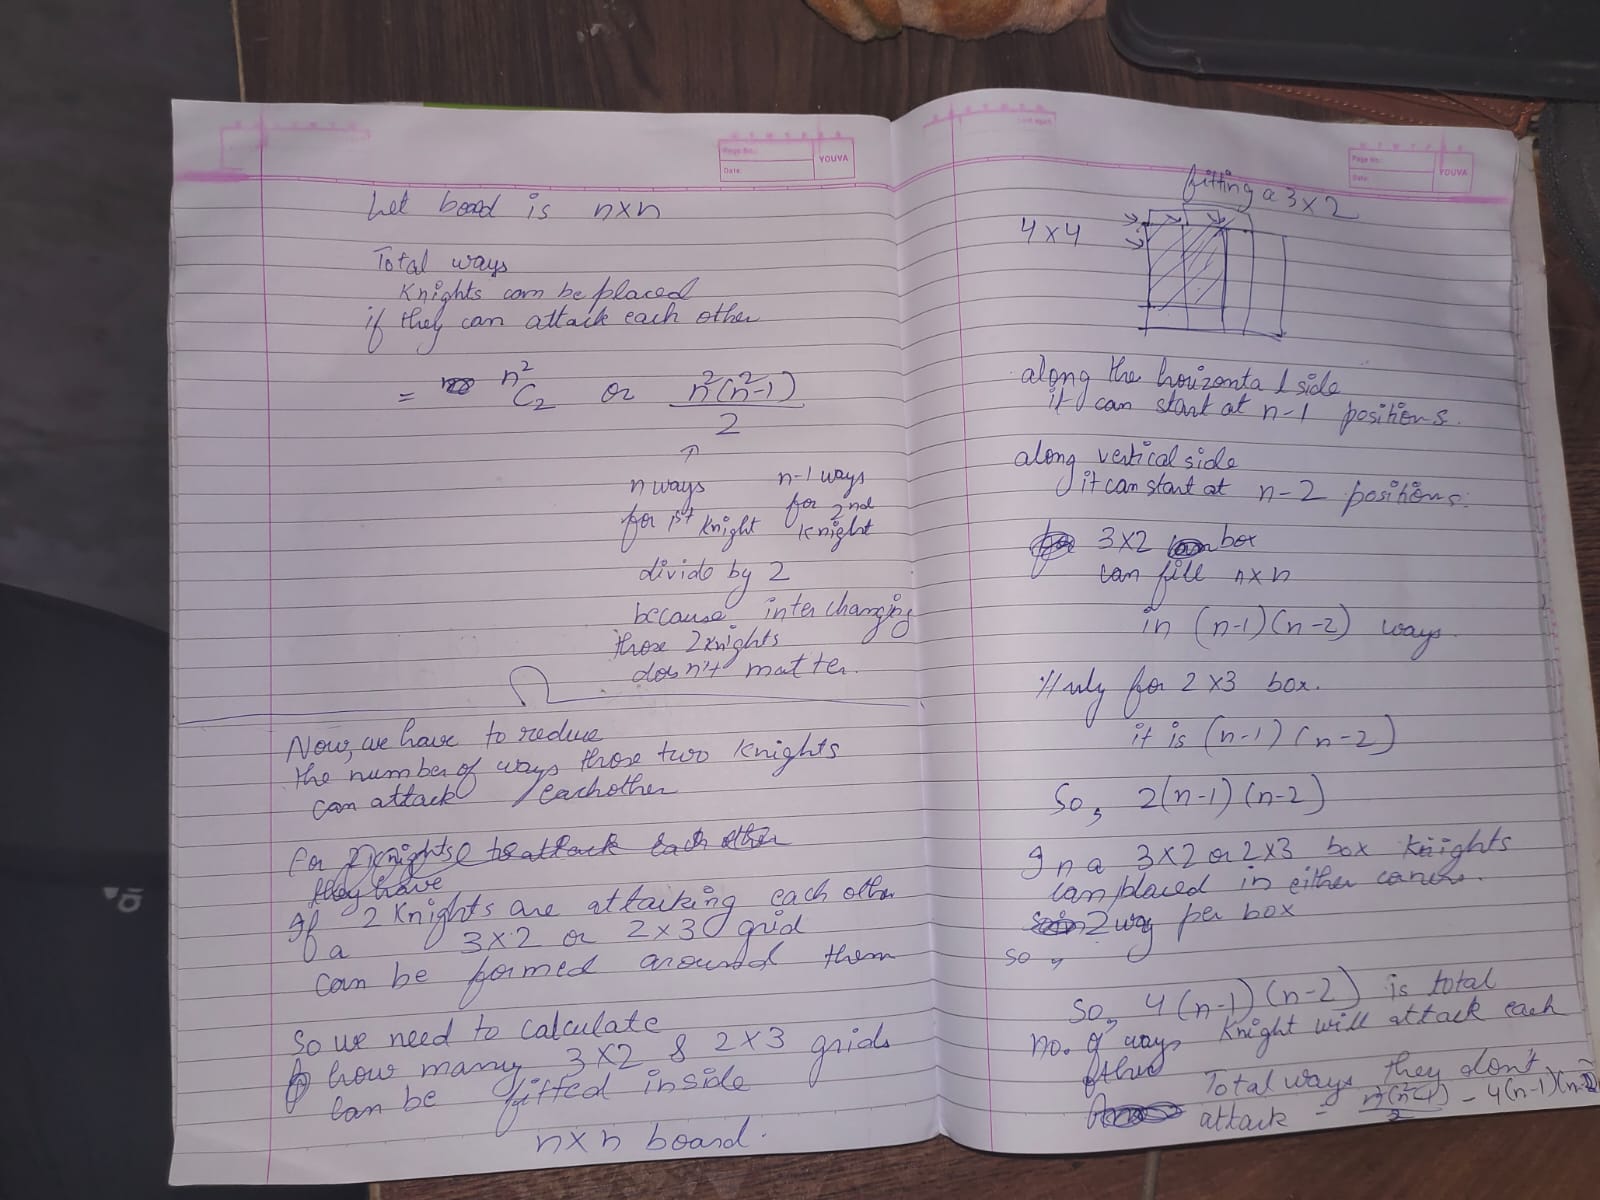 Page No.:
Date
YOUVA
Let board is n×n
Total ways
Knights can be placed
if they can attack each other
= n²C₂ or n²(n²-1)/2
↑
n ways n-1 ways
for 1st Knight for 2nd Knight
divide by 2
because interchanging
those 2 knights
doesn't matter.
Now, we have to reduce
the number of ways those two Knights
can attack eachother
for 2 Knights to attack each other
they have
If 2 Knights are attacking each other
a 3×2 or 2×3 grid
can be formed around them
So we need to calculate
how many 3×2 & 2×3 grids
can be fitted inside
n×n board.
Page No.:
Date:
YOUVA
fitting a 3×2
4×4
along the horizontal side
it can start at n-1 positions.
along vertical side
it can start at n-2 positions.
3×2 box
can fill n×n
in (n-1)(n-2) ways.
111rly for 2×3 box.
it is (n-1)(n-2)
So, 2(n-1)(n-2)
In a 3×2 or 2×3 box Knights
can placed in either corners.
2 way per box
so,
So, 4(n-1)(n-2) is total
no. of ways Knight will attack each
other
Total ways they don't
attack = n²(n²-1)/2 - 4(n-1)(n-2)